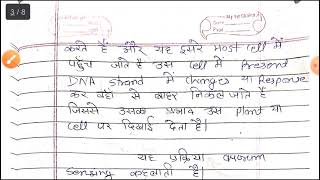 3 / 8
करते हैं और यह दूसरे Most Cell में
पहुँच जाते है उस Cell में Present
DNA Strand में Changes या Response
कर वहाँ से बाहर निकल जाते है
जिससे उसका प्रभाव उस Plant या
Cell पर दिखाई देता है।
यह प्रक्रिया
Sensing कहलाती है।